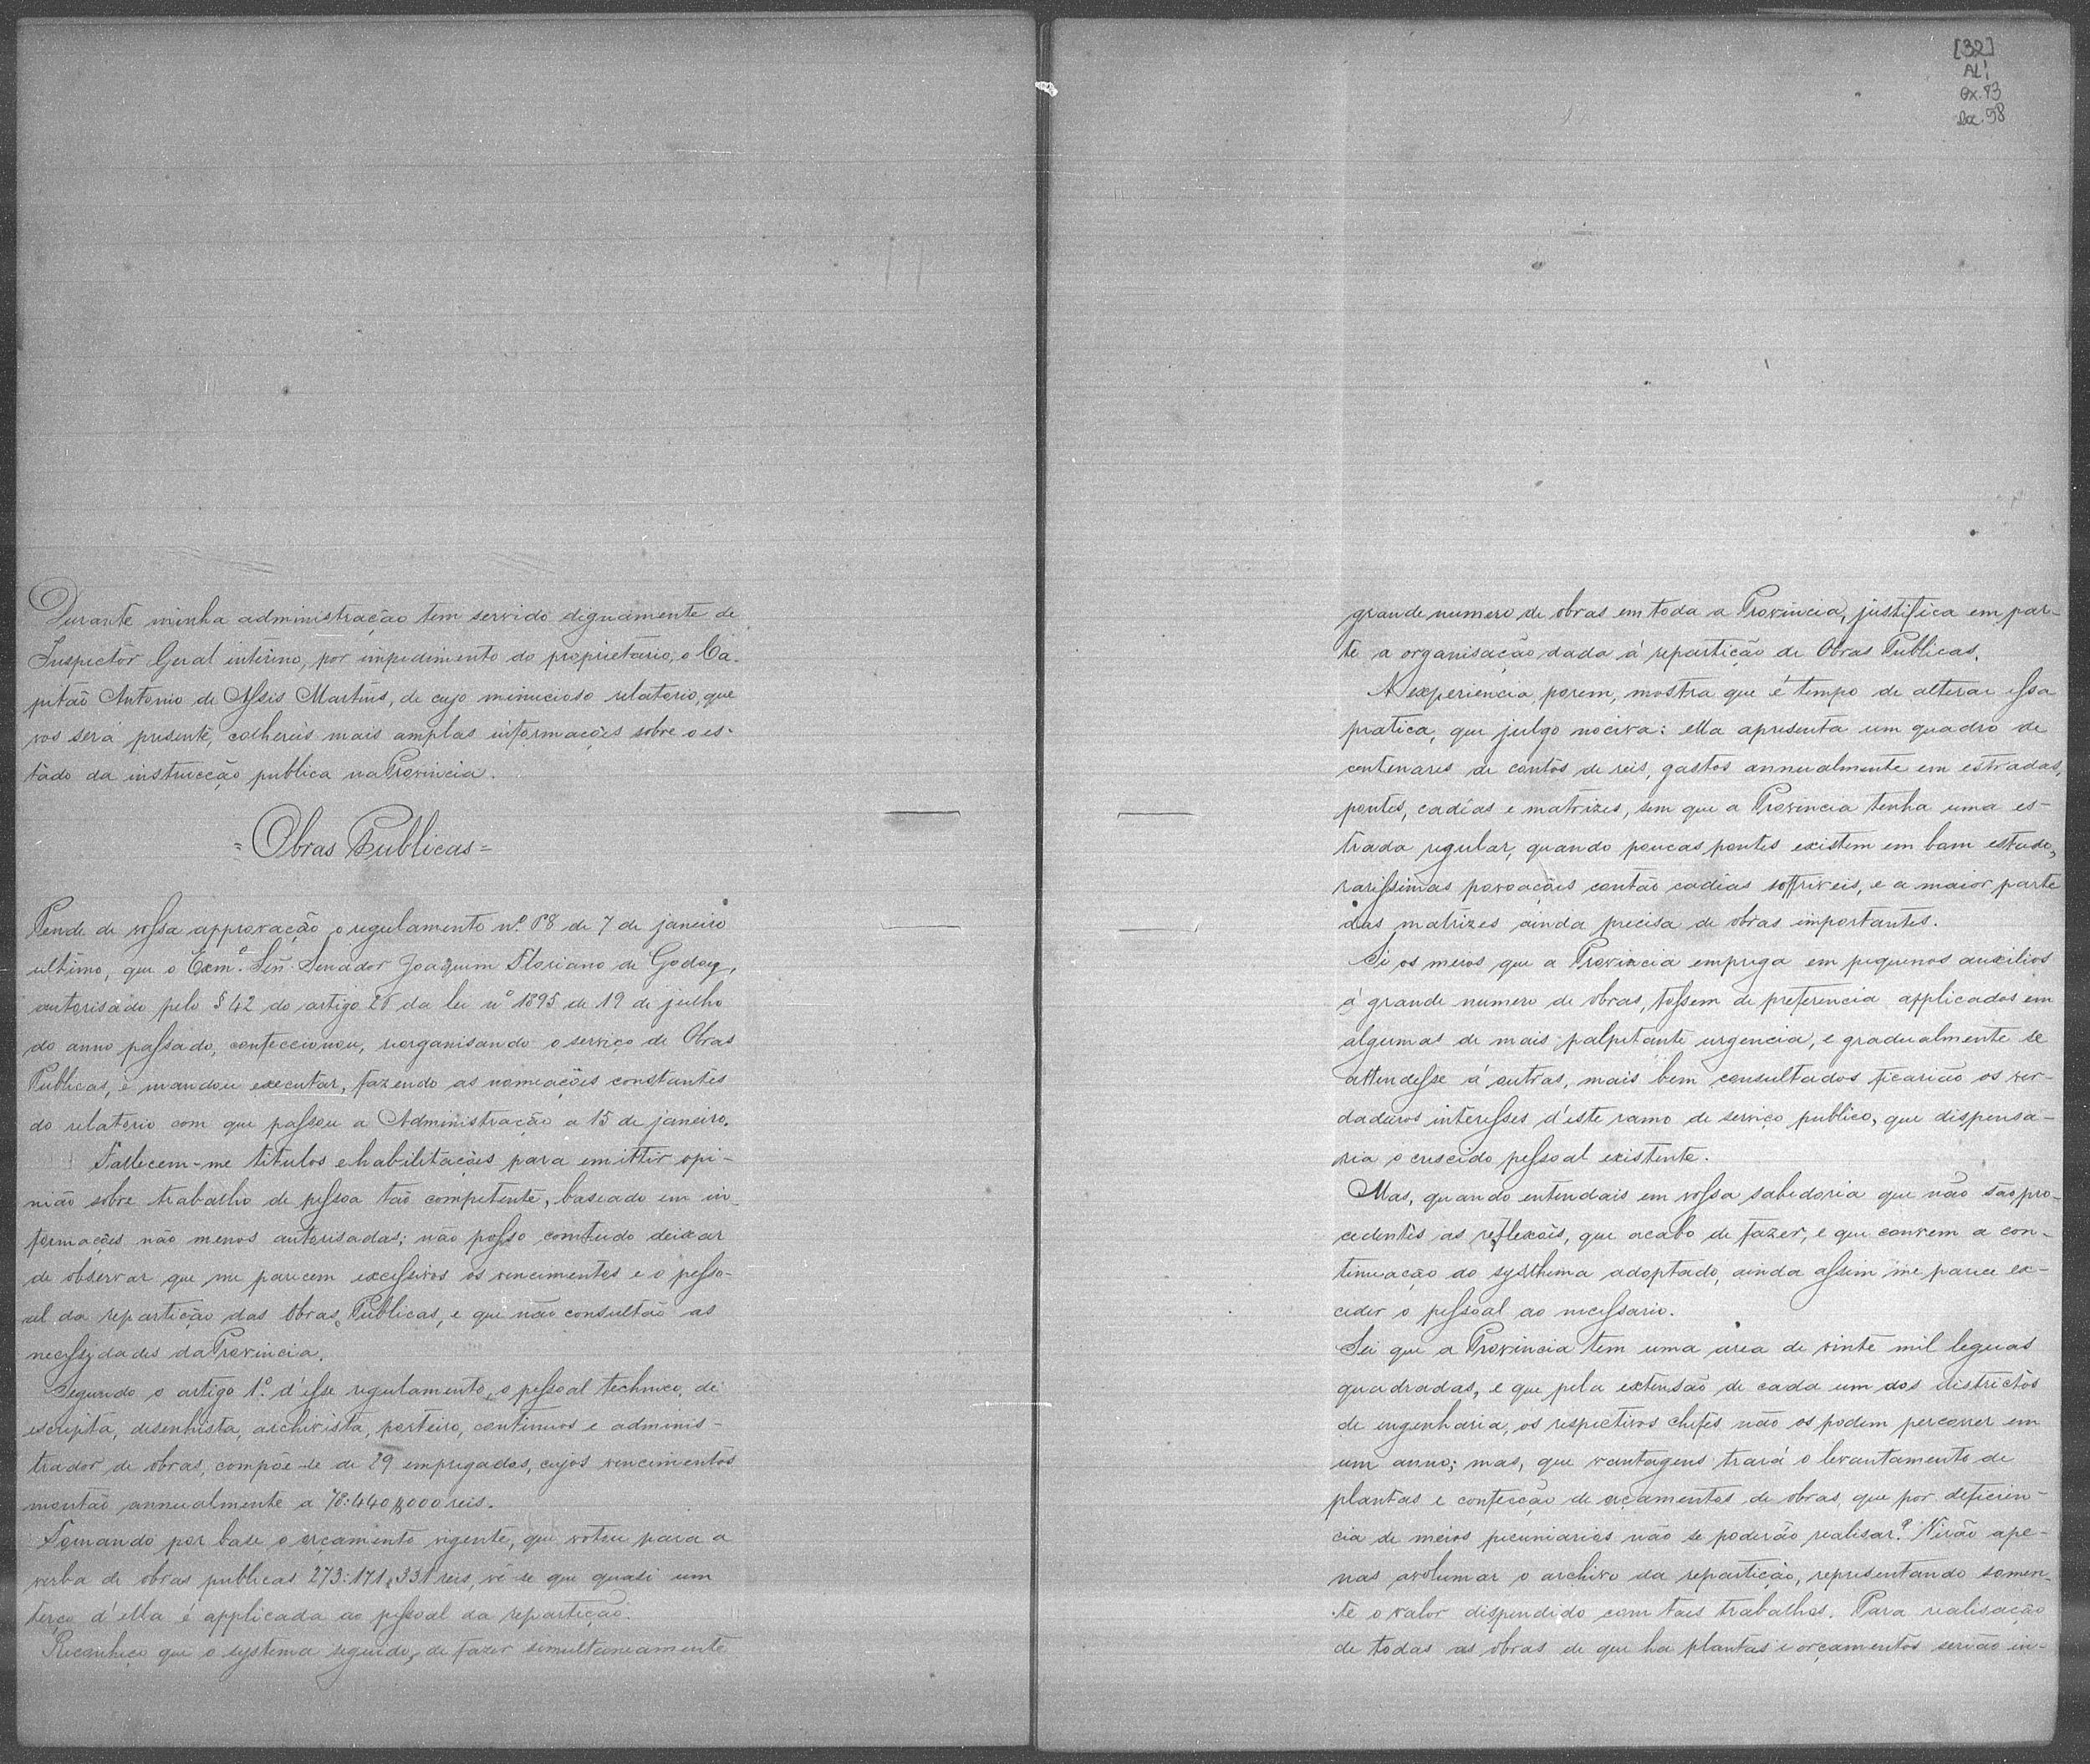 Durante minha administração tem servido dignamente de
Inspector Geral interino, por impedimento do proprietario, o Ca-
pitão Antonio de Assis Martins, de cujo minucioso relatorio, que
vos será presente, colhereis mais amplas informações sobre o es-
tado da instrucção publica na Provincia.
=Obras Publicas=
Pende de vossa approvação o regulamento nº 68 de 7 de janeiro
ultimo, que o Exmº Señ Senador Joaquim Floriano de Godoy,
autorisado pelo § 42 do artigo da lei nº 1895 de 19 de julho
do anno passado, confeccionou, reorganisando o serviço de Obras
Publicas, e mandou executar, fazendo as nomeações constantes
do relatorio com que passou a Administração a 15 de janeiro.
Fallecem-me titulos e habilitações para emittir opi-
nião sobre trabalho de pessoa tão competente, baseado em in-
formações não menos autorisadas; não posso comtudo deixar
de observar que me parecem excessivos os vencimentos e o pesso-
al da repartição das Obras Publicas, e que não consultão as
necessidades da Provincia.
Segundo o artigo 1º d'esse regulamento, o pessoal technico, de
escripta, desenhista, archivista, porteiro, continuos e adminis-
trador de obras, compõe-se de 29 empregados, cujos vencimentos
montão annualmente a 78:440$000 reis.
Tomando por base o orçamento vigente, que votou para a
verba de obras publicas 273:171$331 reis, vê-se que quasi um
terço d'ella é applicada ao pessoal da repartição.
Reconheço que o systema seguido, de fazer simultaneamente
[32]
AL1
cx.93
doc.58
grande numero de obras em toda a Provincia, justifica em par-
te a organisação dada á repartição de Obras Publicas.
A experiencia, porem, mostra que é tempo de alterar essa
pratica, que julgo nociva: ella apresenta um quadro de
centenares de contos de reis, gastos annualmente em estradas,
pontes, cadêas e matrizes, sem que a Provincia tenha uma es-
trada regular, quando poucas pontes existem em bom estado,
rarissimas povoações contão cadêas soffriveis, e a maior parte
das matrizes ainda precisa de obras importantes.
Si os meios que a Provincia emprega em pequenos auxilios
á grande numero de obras, fossem de preferencia applicados em
algumas de mais palpitante urgencia, e gradualmente se
attendesse á outras, mais bem consultados ficarião os ver-
dadeiros interesses d'este ramo de serviço publico, que dispensa-
ria o crescido pessoal existente.
Mas, quando entendais em vossa sabedoria que não são pro-
cedentes as reflexões, que acabo de fazer, e que convem a con-
tinuação do systhema adoptado, ainda assim me parece ex-
ceder o pessoal ao necessario.
Sei que a Provincia tem uma area de vinte mil leguas
quadradas, e que pela extensão de cada um dos districtos
de engenharia, os respectivos chefes não os podem percorrer em
um anno; mas, que vantagens trará o levantamento de
plantas e confecção de orçamentos de obras, que por deficien-
cia de meios pecuniarios não se poderão realisar? Virão ape-
nas avolumar o archivo da repartição, representando somen-
te o valor dispendido com taes trabalhos. Para realisação
de todas as obras de que ha plantas e orçamentos serião in-